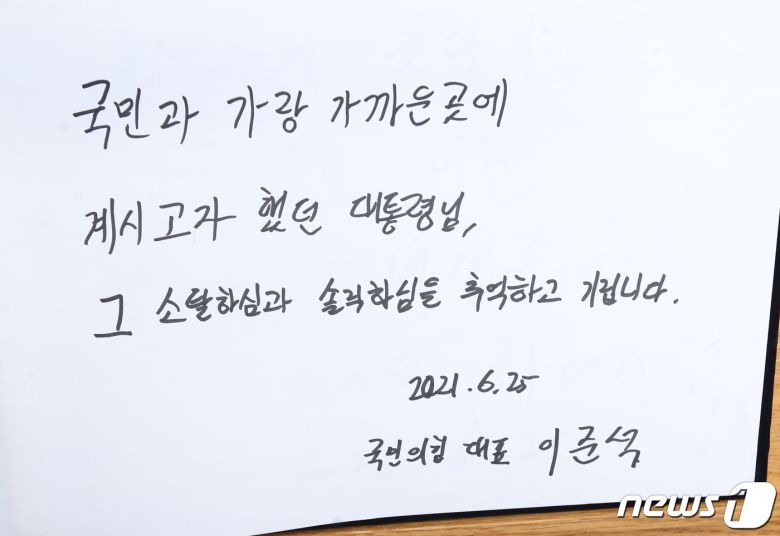 국민과 가장 가까운곳에
계시고자 했던 대통령님,
그 소탈하심과 솔직하심을 추억하고 기립니다.
2021. 6. 25
국민의힘 대표 이준석
news1